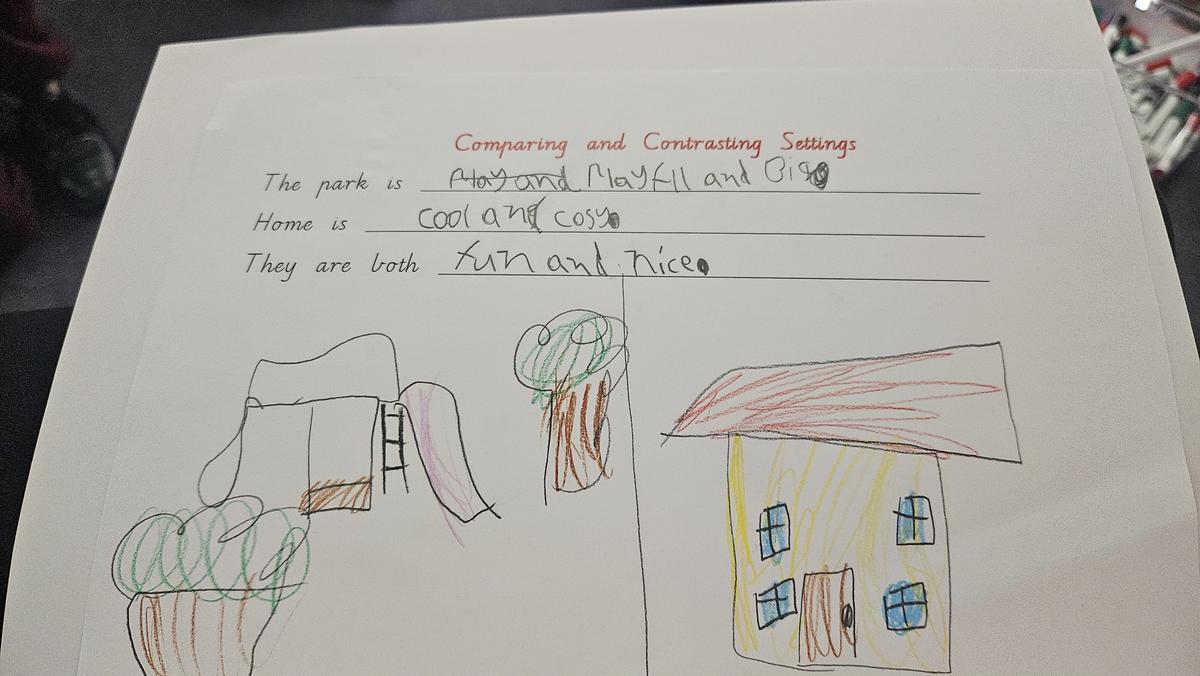 Comparing and Contrasting Settings
The park is Play and Playfll and Big.
Home is cool and cosy.
They are both fun and nice.